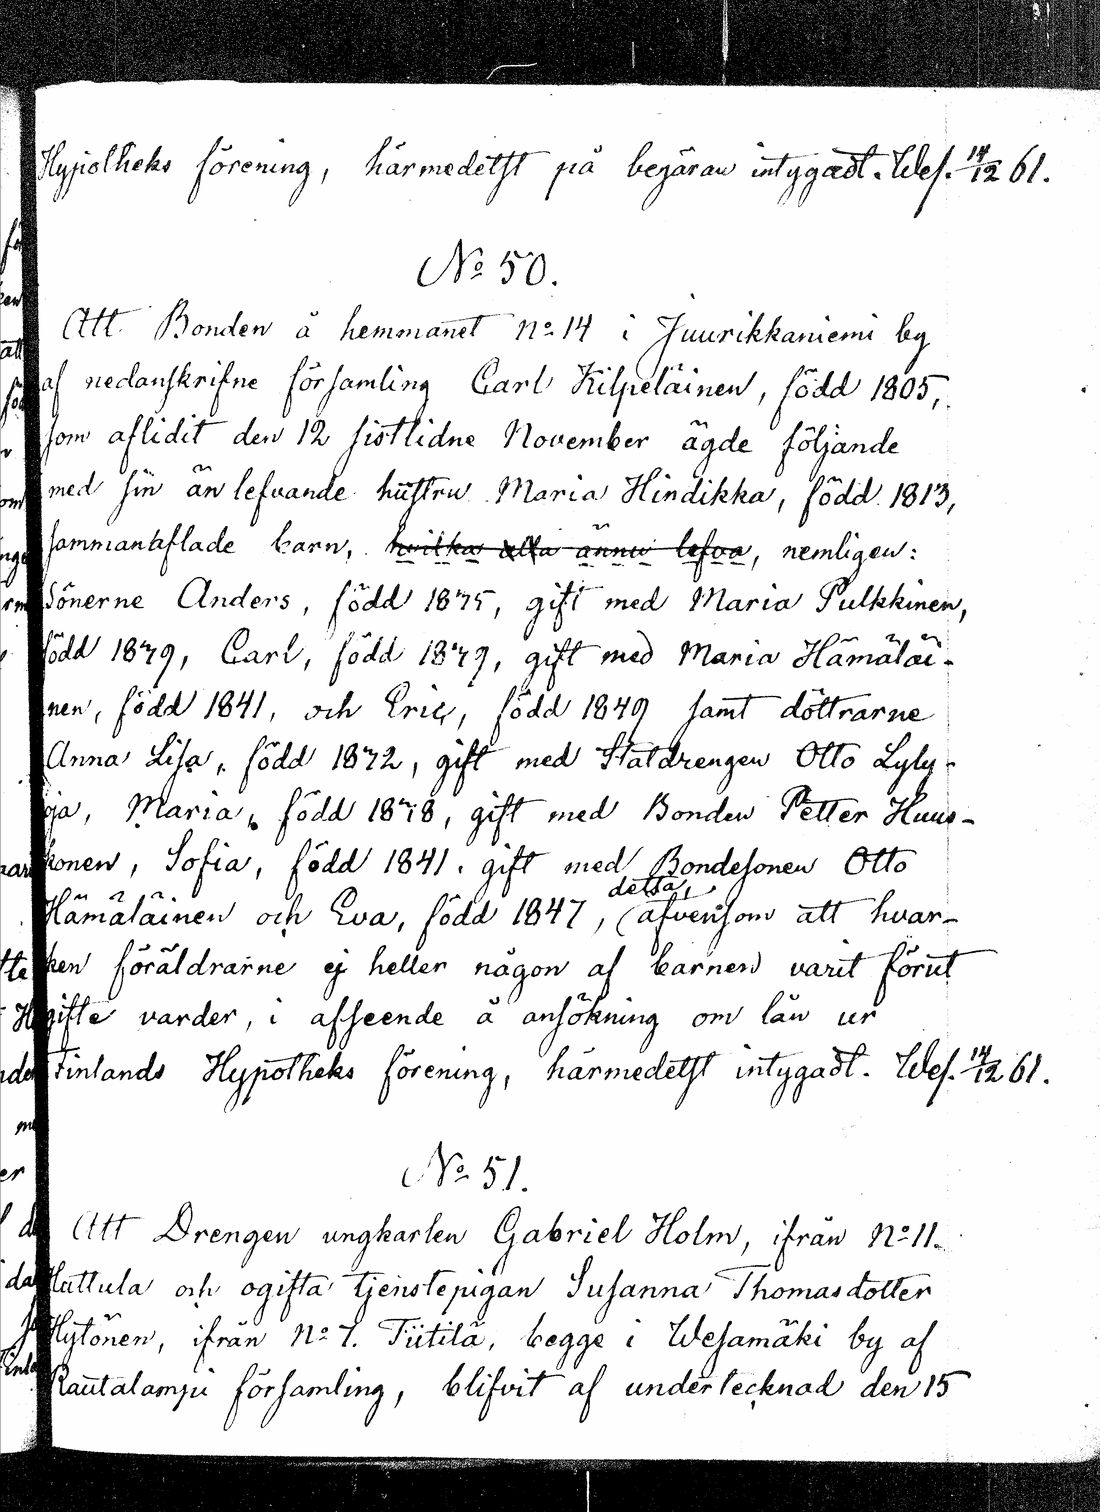 Hypotheks förening, härmedelst på begäran intygadt. Wes. 14/12 61.
No 50.
Att Bonden å hemmanet No 14 i Juurikkaniemi by
af nedanskrifne församling Carl Kilpeläinen, född 1805,
som aflidit den 12 sistlidne November ägde följande
med sin än lefvande hustru Maria Hindikka, född 1813,
sammanaflade barn, hvilka alla ännu lefva, nemligen:
Sönerne Anders, född 1835, gift med Maria Pulkkinen,
född 1839, Carl, född 1839, gift med Maria Hämäläi-
nen, född 1841, och Eric, född 1849 samt döttrarne
Anna Lisa, född 1832, gift med Staldrengen Otto Lyly-
oja, Maria, född 1838, gift med Bonden Petter Huus-
konen, Sofia, född 1841, gift med Bondesonen Otto
detta,
Hämäläinen och Eva, född 1847, (äfvensom att hvar-
ken föräldrarne ej heller någon af barnen varit förut
gifte varder, i afseende å ansökning om lån ur
Finlands Hypotheks förening, härmedelst intygadt. Wes. 14/12 61.
No 51.
Att Drengen ungkarlen Gabriel Holm, ifrån No 11.
Huttula och ogifta tjenstepigan Susanna Thomasdotter
Hytönen, ifrån No 7. Tiitilä, begge i Wesamäki by af
Rautalampi församling, blifvit af undertecknad den 15